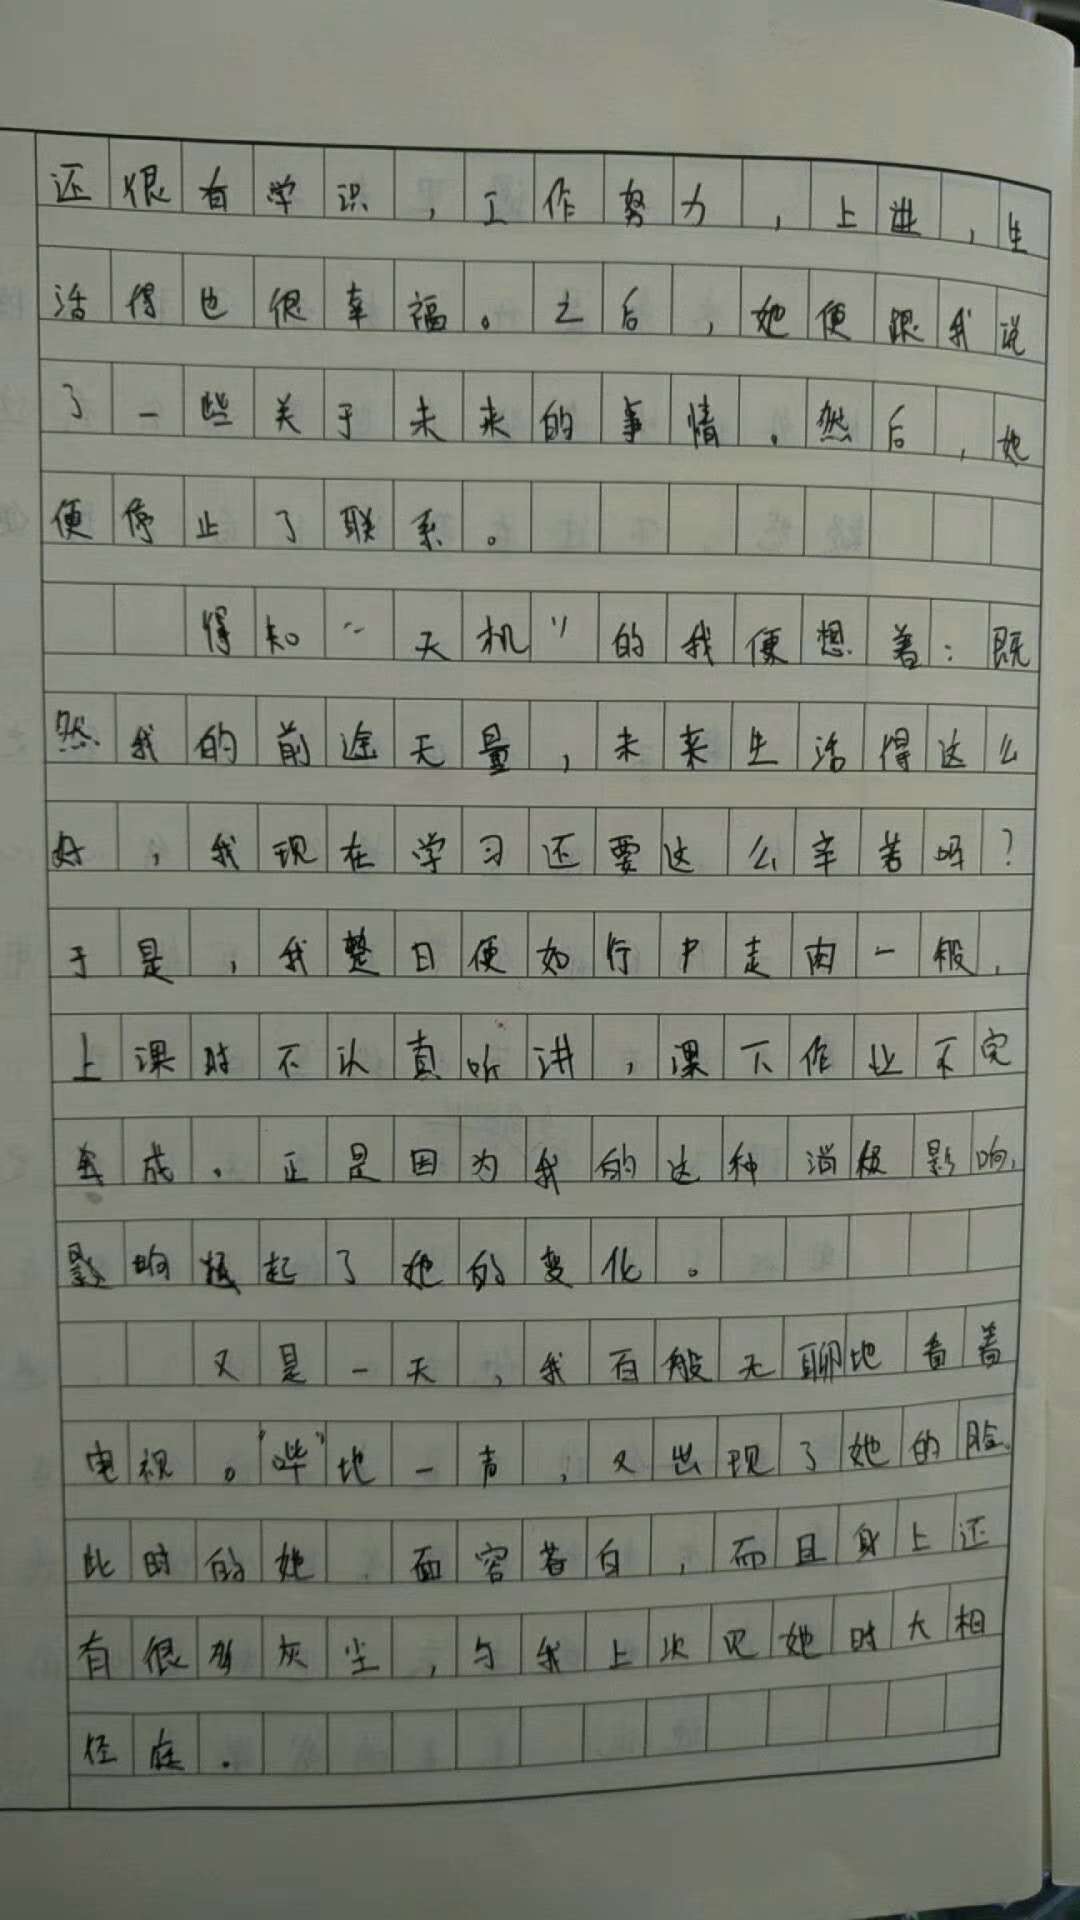 还很有学识，工作努力，上进，生
活得也很幸福。之后，她便跟我说
了一些关于未来的事情。然后，她
便停止了联系。
得知“天机”的我便想着：既
然我的前途无量，未来生活得这么
好，我现在学习还要这么辛苦吗？
于是，我整日便如行尸走肉一般，
上课时不认真听讲，课下作业不完
成。正是因为我的这种消极影响，
影响起了她的变化。
又是一天，我百般无聊地看着
电视。“哔”地一声，又出现了她的脸。
此时的她，面容苍白，而且身上还
有很多灰尘，与我上次见她时大相
径庭。